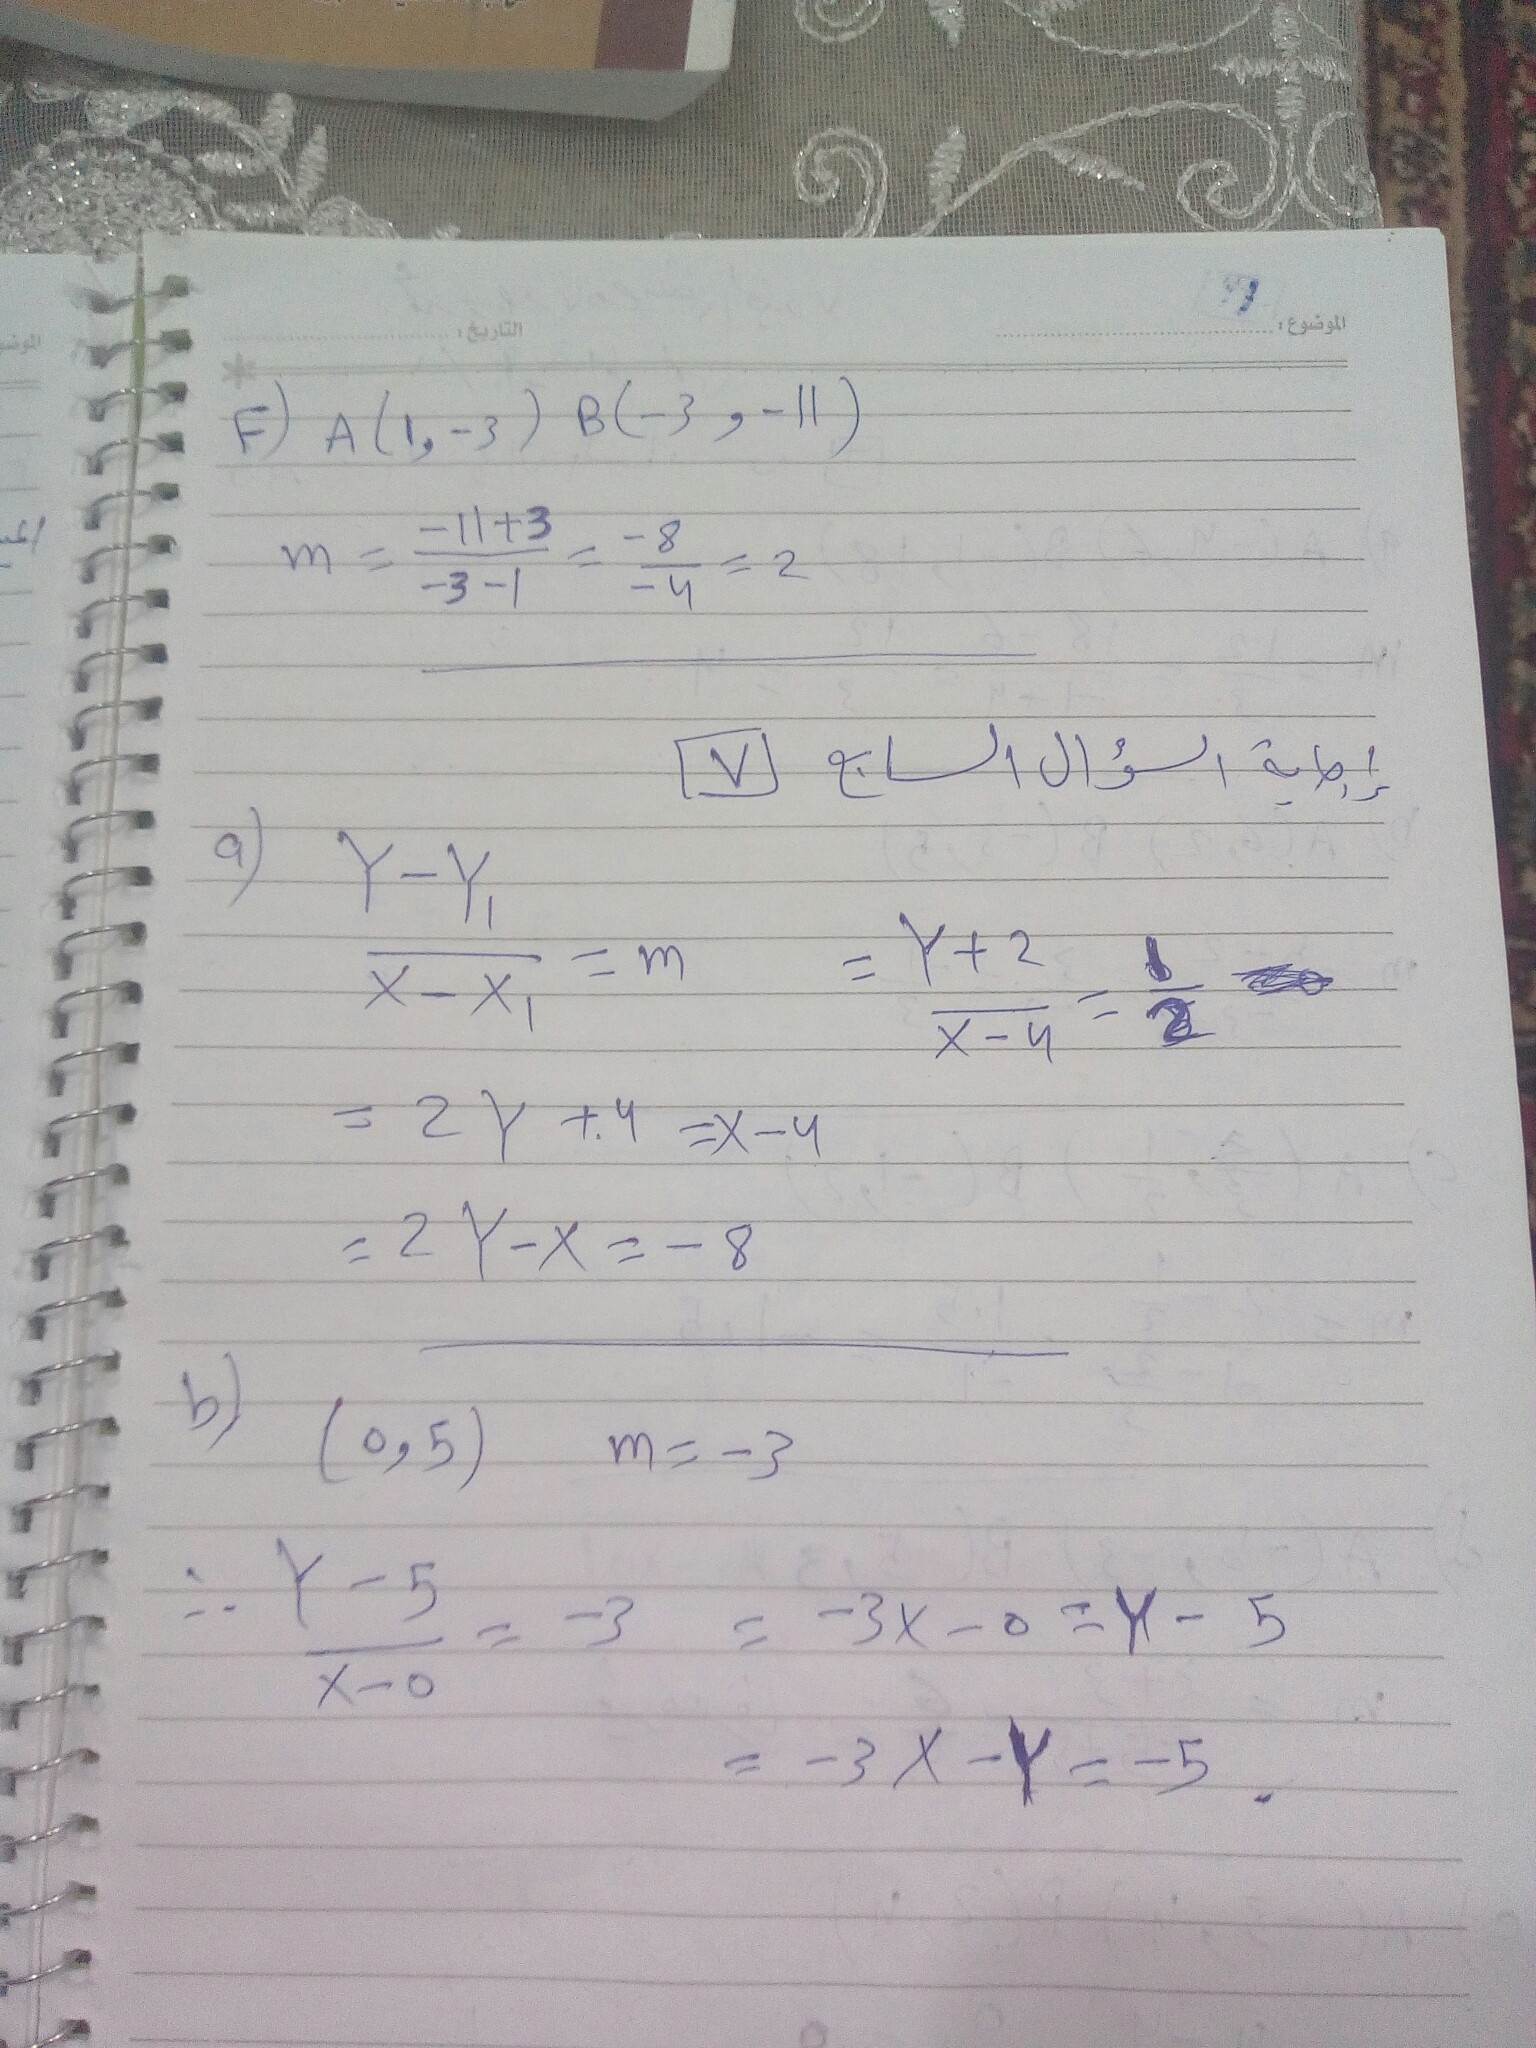 الموضوع: التاريخ:
F) A(1,-3) B(-3,-11)
m = \frac{-11+3}{-3-1} = \frac{-8}{-4} = 2
إجابة السؤال السابع ٧
a) \frac{Y-Y_1}{X-X_1} = m = \frac{Y+2}{X-4} = \frac{1}{2}
= 2Y+4 = X-4
= 2Y-X = -8
b) (0,5) m = -3
∴ \frac{Y-5}{X-0} = -3 = -3X-0 = Y-5
= -3X-Y = -5.